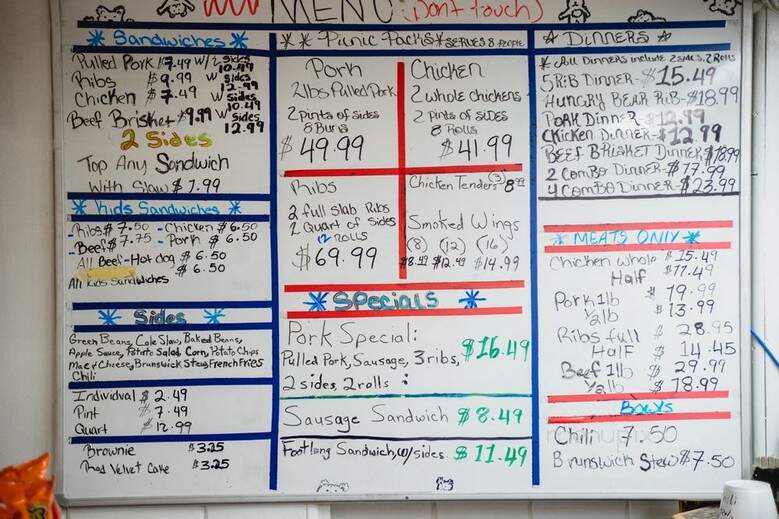 MENU (Don't touch)
* Sandwiches *
Pulled Pork $7.49 w/ 2 sides 10.49
Ribs $9.99 w/ sides 12.99
Chicken $7.49 w/ sides 10.49
Beef Brisket $9.99 w/ sides 12.99
2 Sides
Top Any Sandwich
With Slaw $1.99
* Kids Sandwiches *
- Ribs $7.50 - Chicken $6.50
- Beef $7.75 - Pork $6.50
All Beef-Hot dog $6.50
$6.50
All Kids Sandwiches
* Sides *
Green Beans, Cole Slaw, Baked Beans,
Apple Sauce, Potato Salad Corn, Potato Chips
Mac & Cheese, Brunswick Stew, French Fries
Chili
Individual $2.49
Pint $7.49
Quart $12.99
Brownie $3.25
Red Velvet Cake $3.25
* * Picnic Packs * SERVES 8 People
Pork
2lbs Pulled Pork
2 pints of sides
8 Buns
$49.99
Chicken
2 whole chickens
2 pints of SIDES
8 Rolls
$41.99
Ribs
2 full slab Ribs
1 Quart of Sides
12 rolls
$69.99
Chicken Tenders (3) 8.99
Smoked Wings
(8) (12) (16)
$8.49 $12.49 $14.99
* Specials *
Pork Special:
Pulled Pork, Sausage, 3 ribs, $16.49
2 sides, 2 rolls
Sausage Sandwich $8.49
Footlong Sandwich, w/ sides $11.49
☆ Dinners ☆
* All Dinners include 2 sides, 2 Rolls
5 Rib Dinner - $15.49
Hungry Bear Rib - $18.99
Pork Dinner - $12.99
Chicken Dinner - $12.99
Beef Brisket Dinner $18.99
2 Combo Dinner - $17.99
4 Combo Dinner - $23.99
* MEATS ONLY *
Chicken whole $15.49
Half $11.49
Pork 1lb $19.99
1/2lb $13.99
Ribs full $28.95
Half $14.45
Beef 1lb $29.99
1/2lb $18.99
Bowls
Chili 7.50
Brunswick Stew $7.50